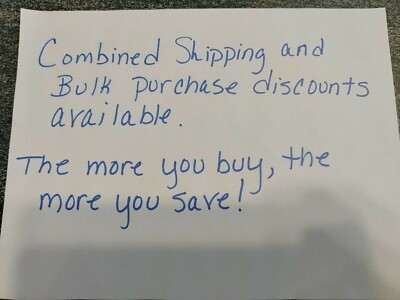 Combined Shipping and
Bulk purchase discounts
available.
The more you buy, the
more you save!